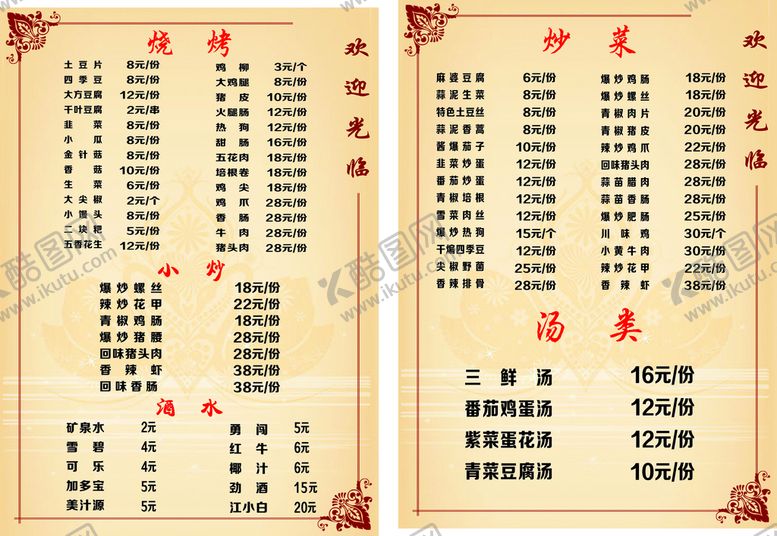 烧烤
欢迎光临
土豆片 8元/份
四季豆 8元/份
大方豆腐 12元/份
干叶豆腐 2元/串
韭菜 8元/份
小瓜 8元/份
金针菇 8元/份
香菇 10元/份
生菜 6元/份
大尖椒 2元/个
小馒头 8元/份
二块粑 5元/份
五香花生 12元/份
鸡柳 3元/个
大鸡腿 8元/份
猪皮 10元/份
火腿肠 12元/份
热狗 12元/份
甜肠 16元/份
五花肉 18元/份
培根卷 18元/份
鸡尖 18元/份
鸡爪 28元/份
香肠 28元/份
牛肉 28元/份
猪头肉 28元/份
小炒
爆炒螺丝 18元/份
辣炒花甲 22元/份
青椒鸡肠 18元/份
爆炒猪腰 28元/份
回味猪头肉 28元/份
香辣虾 38元/份
回味香肠 38元/份
酒水
矿泉水 2元
雪碧 4元
可乐 4元
加多宝 5元
美汁源 5元
勇闯 5元
红牛 6元
椰汁 6元
劲酒 15元
江小白 20元
炒菜
欢迎光临
麻婆豆腐 6元/份
蒜泥生菜 8元/份
特色土豆丝 8元/份
蒜泥香蒿 8元/份
酱爆茄子 10元/份
韭菜炒蛋 12元/份
番茄炒蛋 12元/份
青椒培根 12元/份
雪菜肉丝 12元/份
爆炒热狗 15元/个
干煸四季豆 12元/份
尖椒野菌 25元/份
香辣排骨 28元/份
爆炒鸡肠 18元/份
爆炒螺丝 18元/份
青椒肉片 20元/份
青椒猪皮 20元/份
辣炒鸡爪 25元/份
回味猪头肉 28元/份
蒜苗腊肉 28元/份
蒜苗香肠 28元/份
爆炒肥肠 25元/份
川味鸡 30元/个
小黄牛肉 30元/份
辣炒花甲 22元/份
香辣虾 38元/份
汤类
三鲜汤 16元/份
番茄鸡蛋汤 12元/份
紫菜蛋花汤 12元/份
青菜豆腐汤 10元/份
酷图网
www.ikutu.com